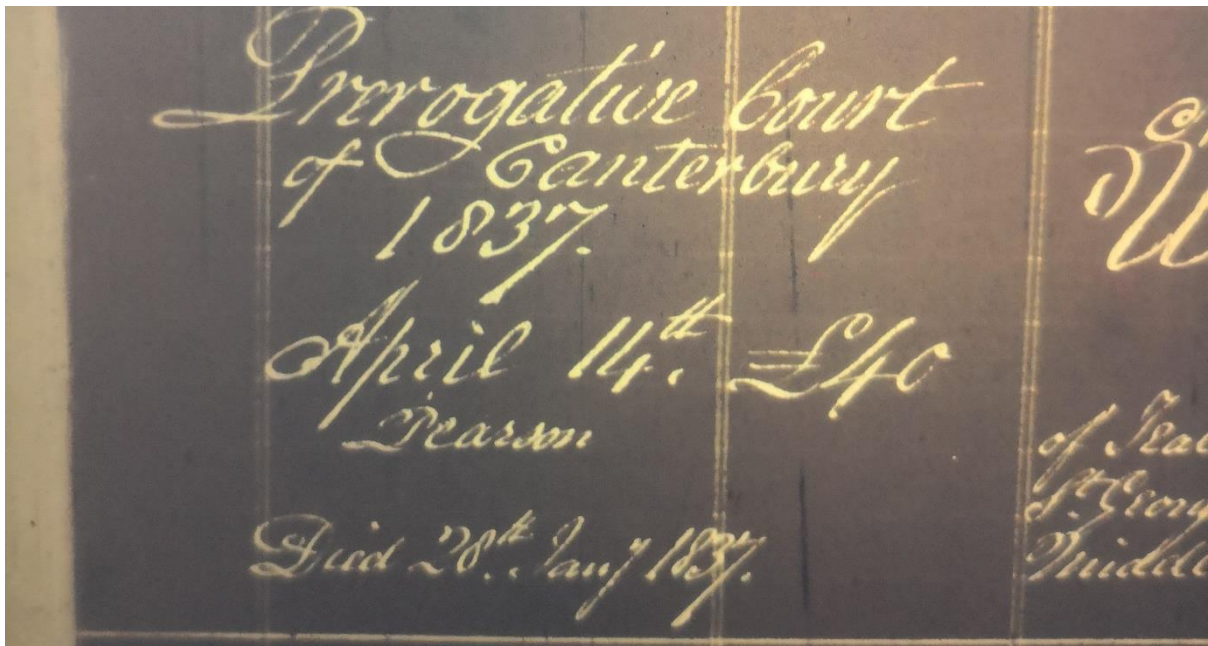 Prerogative Court
of Canterbury
1837.
April 14th. £40
Pearson
Died 28th. Jany 1837.
of
St. Georg
Middl